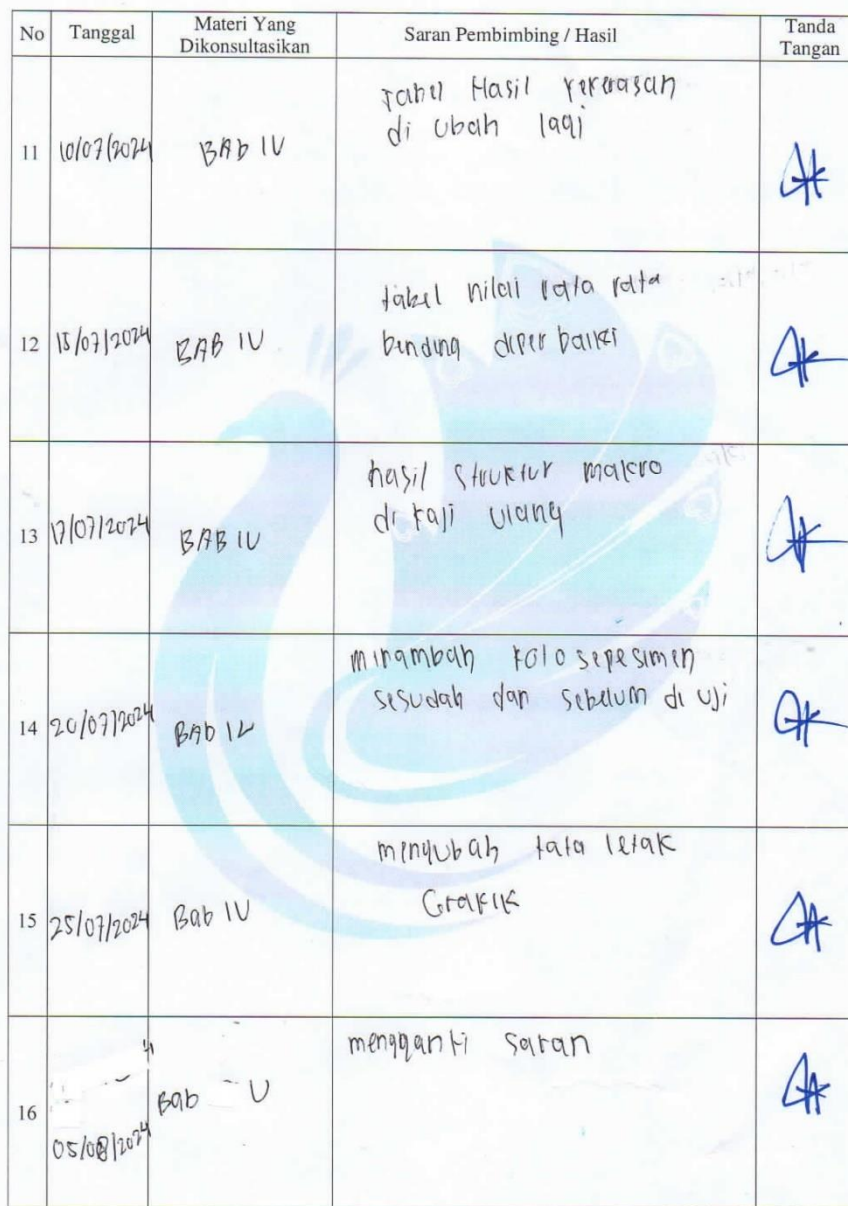 No Tanggal Materi Yang Dikonsultasikan Saran Pembimbing / Hasil Tanda Tangan
11 10/07/2024 BAb IV Tabel Hasil kekerasan
di ubah lagi
12 15/07/2024 BAB IV tabel nilai rata rata
bending diperbaiki
13 17/07/2024 BAB IV hasil struktur makro
di kaji ulang
14 20/07/2024 BAb IV minambah foto sepesimen
sesudah dan sebelum di uji
15 25/07/2024 Bab IV mengubah tata letak
Grafik
16 05/08/2024 Bab V mengganti saran